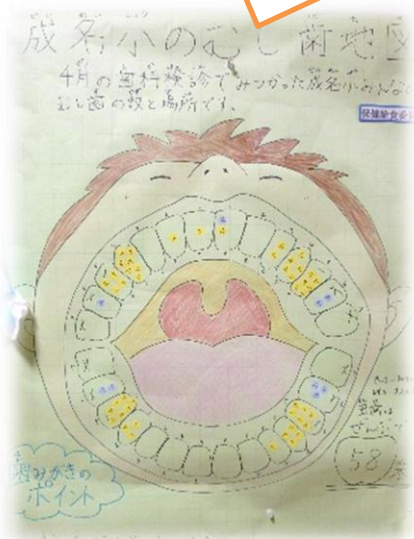 成名小のむし歯地図
4月の歯科検診でみつかった成名小みんなの
むし歯の数と場所です。
保健給食委
58本
歯みがきの
ポイント